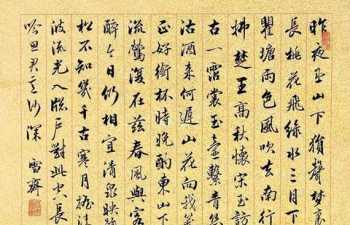 昨夜巫山下猿聲夢裏
長桃花飛綠水三月下
瞿塘雨色風吹去南行
拂楚王高秋懷宋玉訪
古一霑裳玉壺繫青絲
沽酒來何遲山花向我笑
正好銜杯時晚酌東山下
流鶯復在茲春風與客
醉今日仍相宜清泉映疏
松不知幾千古寒月搖清
波流光入窗戶對此空長
吟思君意何深 雪齋